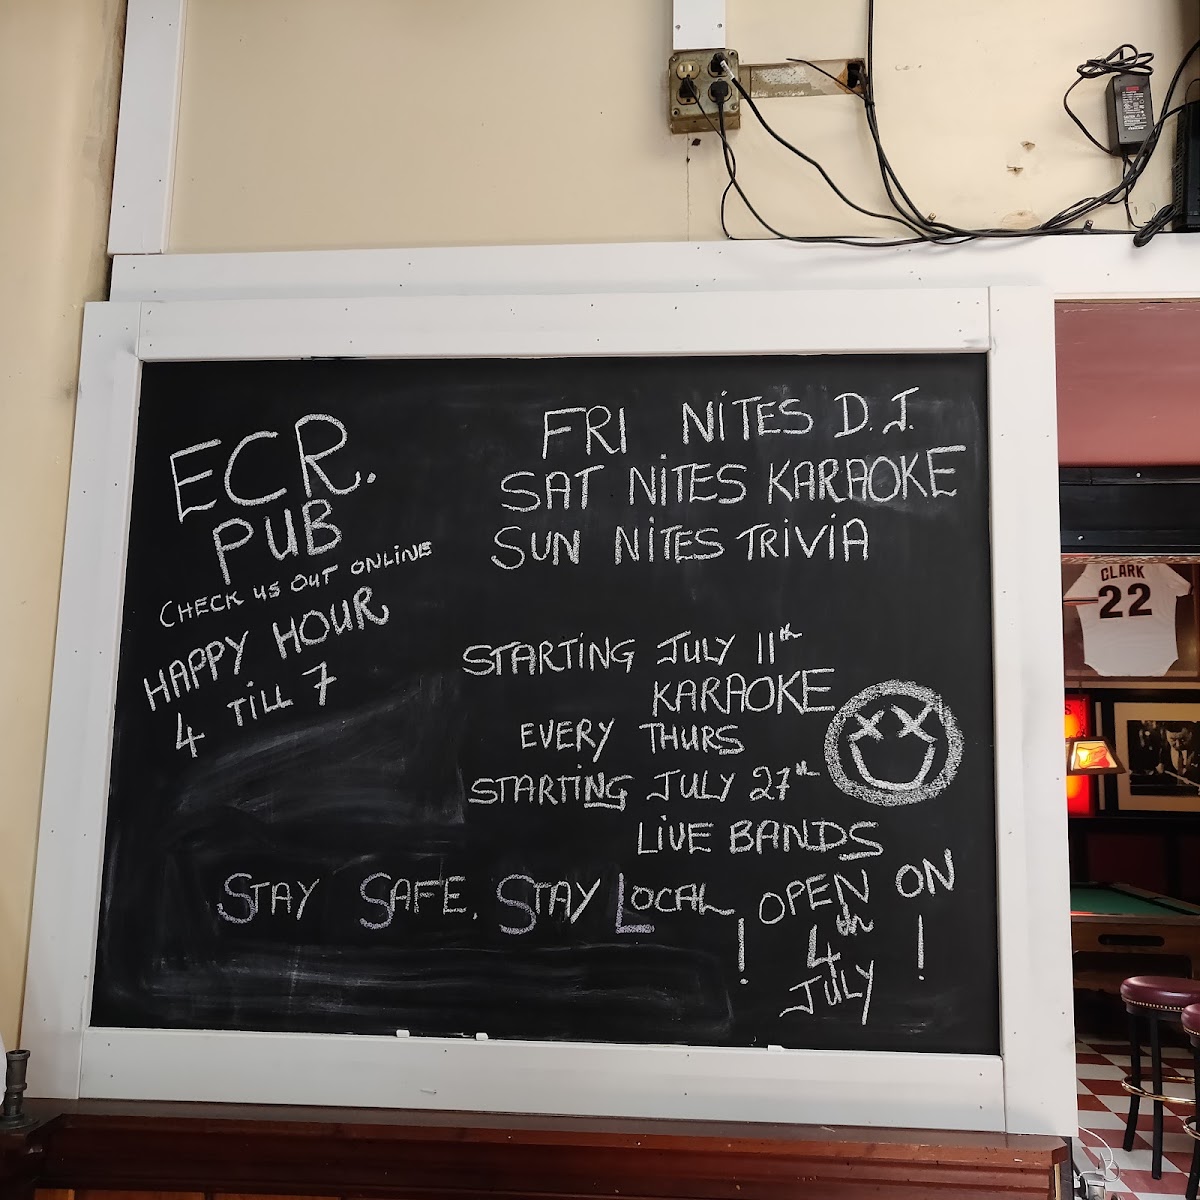 ECR.
PUB
CHECK US OUT ONLINE
HAPPY HOUR
4 TILL 7
FRI NITES D.J.
SAT NITES KARAOKE
SUN NITES TRIVIA
STARTING JULY 11th
KARAOKE
EVERY THURS
STARTING JULY 27th
LIVE BANDS
STAY SAFE. STAY LOCAL
! OPEN ON
4th
JULY !
CLARK
22